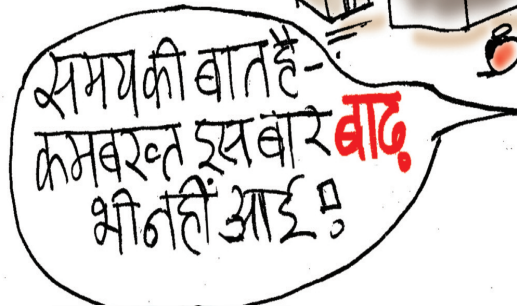 समय की बात है-
कमबख्त इस बार बाढ़
भी नहीं आई!